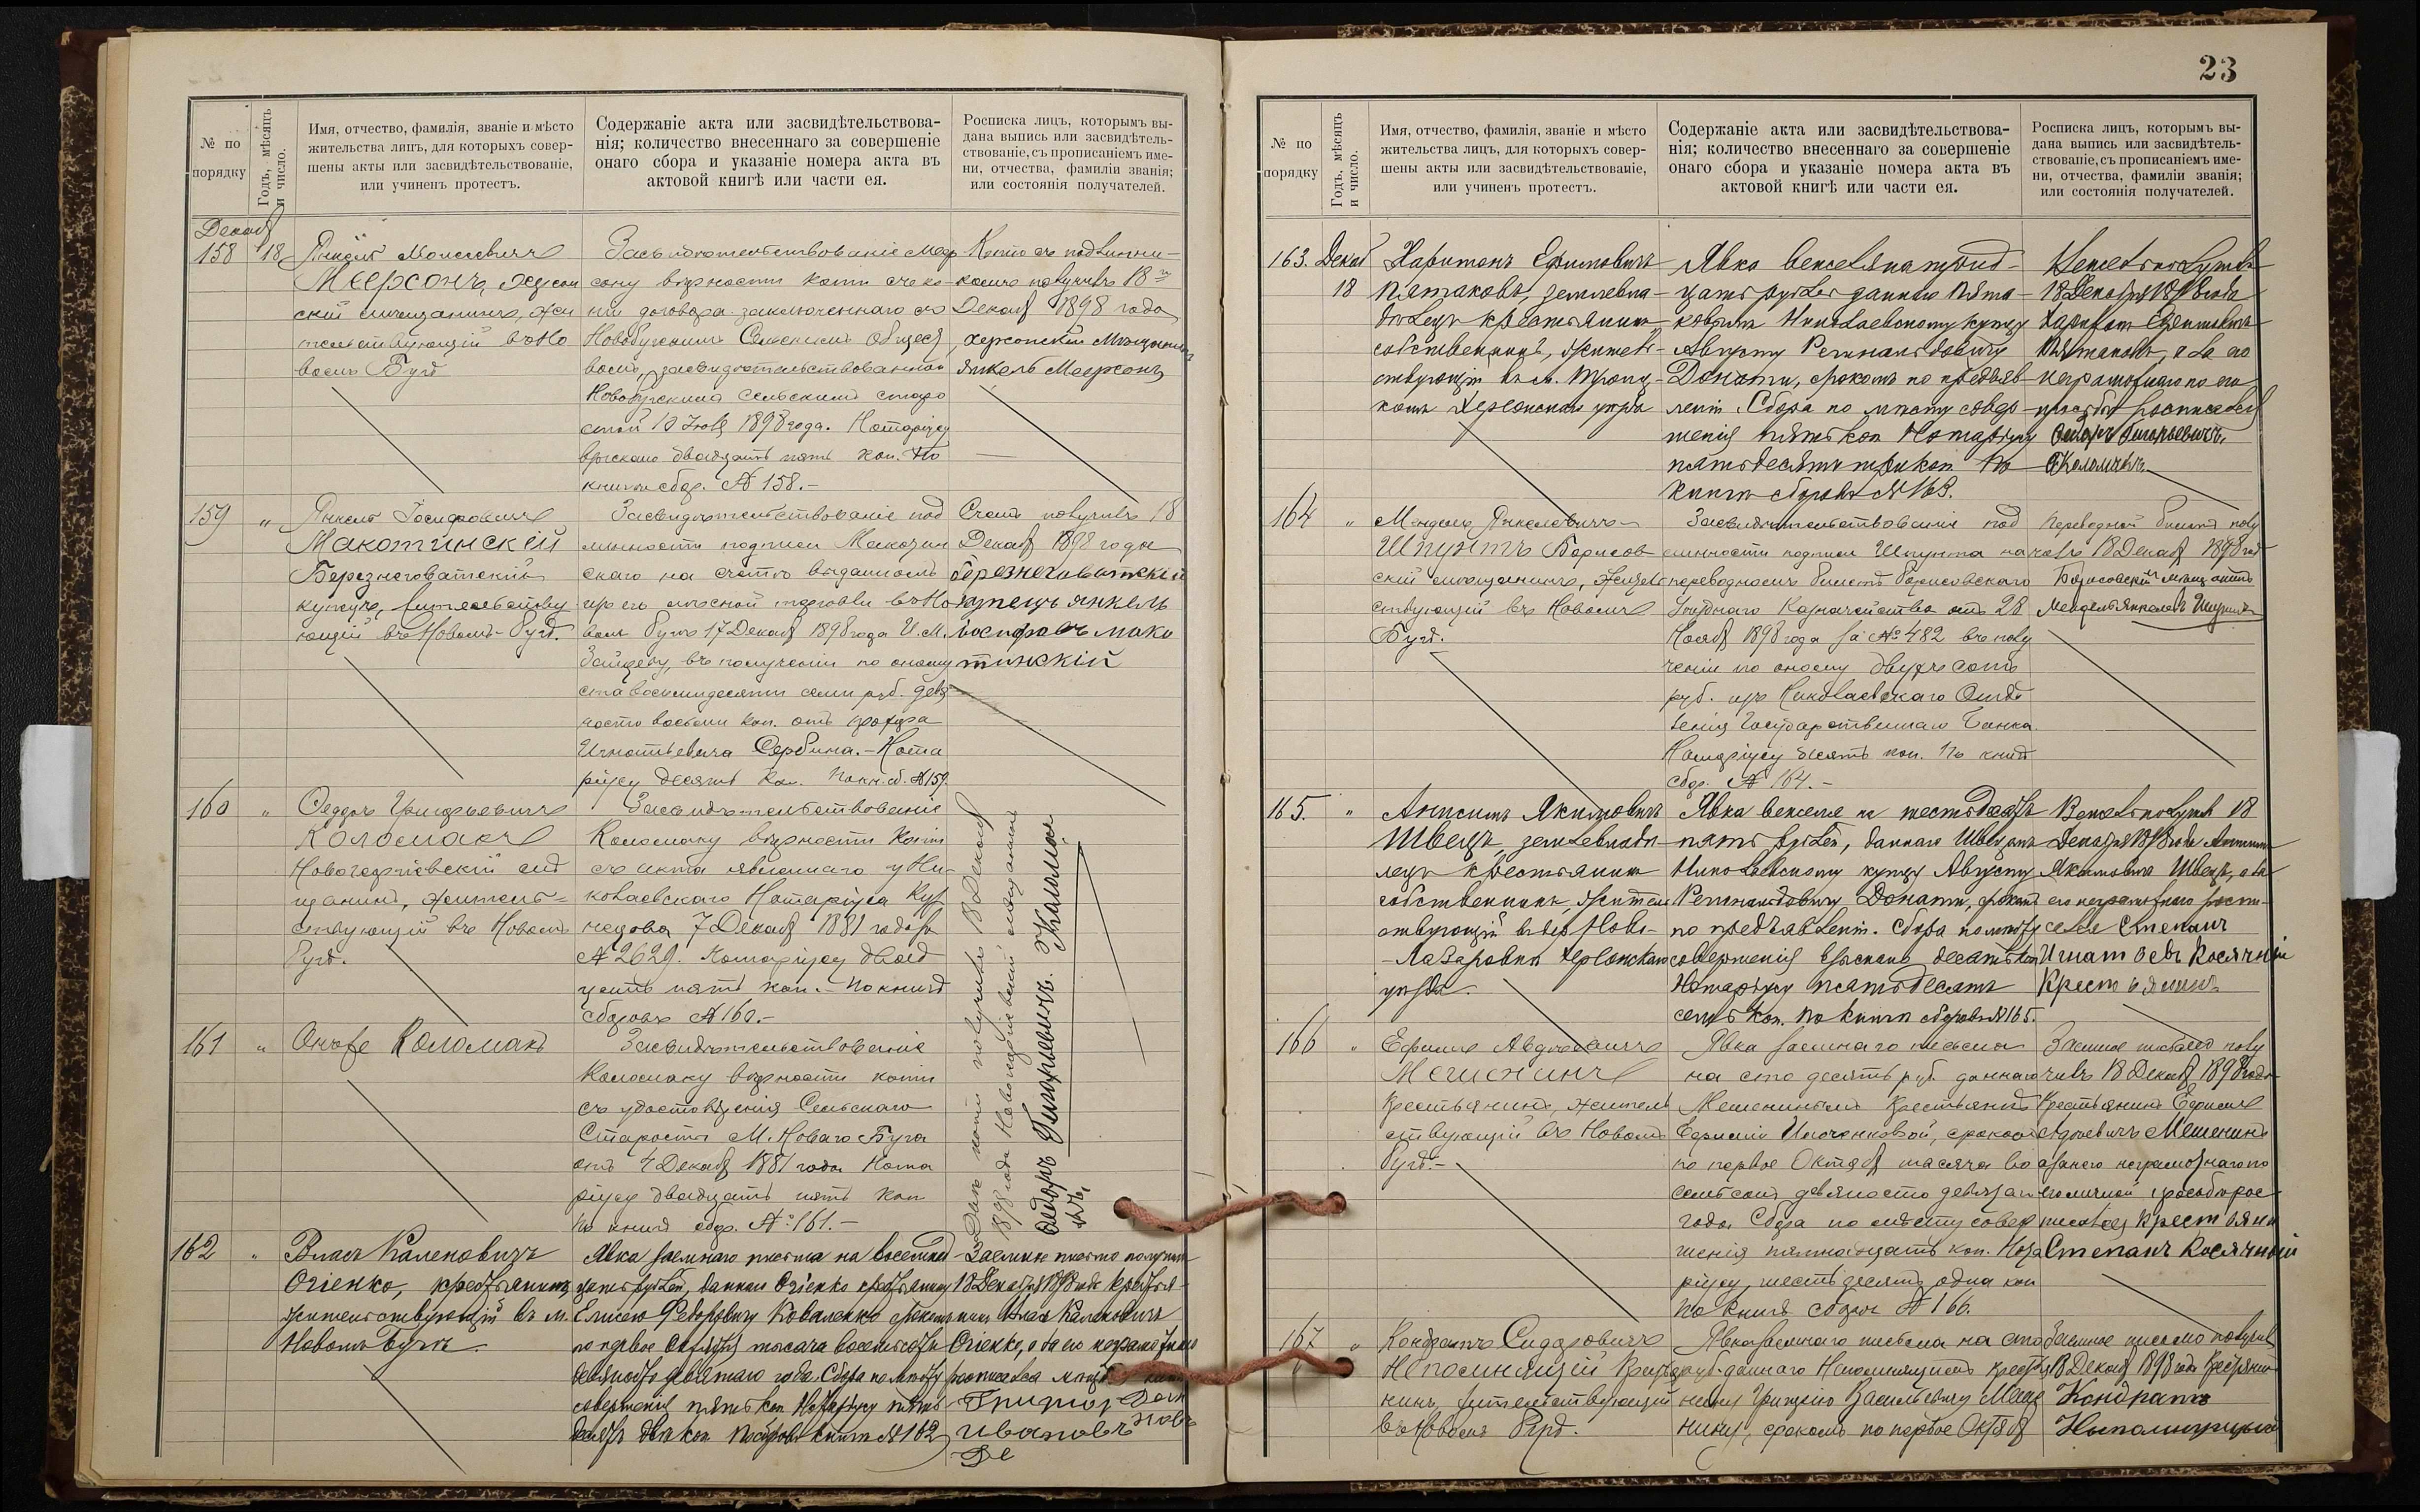 23
№ по порядку
Годъ, мѣсяцъ и число.
Имя, отчество, фамилія, званіе и мѣсто
жительства лицъ, для которыхъ совер-
шены акты или засвидѣтельствованіе,
или учиненъ протестъ.
Содержаніе акта или засвидѣтельствова-
нія; количество внесеннаго за совершеніе
онаго сбора и указаніе номера акта въ
актовой книгѣ или части ея.
Росписка лицъ, которымъ вы-
дана выпись или засвидѣтель-
ствованіе, съ прописаніемъ име-
ни, отчества, фамиліи званія;
или состоянія получателей.
Декаб
158
18
Янкель Моисеевичъ
Меерсонъ, херсон
скій мѣщанинъ, жи
тельствующій въ Но
вомъ Бугѣ
Засвидѣтельствованіе Меер
сону вѣрности копіи съ ко
піи договора заключеннаго съ
Новобугскимъ Сельскимъ Общест
вомъ, засвидѣтельствованной
Новобугскимъ Сельскимъ старо
стой 10 1898 года. Нотаріусу
взыскано двадцать пять коп. По
книгѣ сбор. № 158.-
Копію съ подлинни-
комъ получилъ 18
Декаб 1898 года
херсонскій Мѣщанинъ
Янкель Меерсонъ
159
"
Янкель Іосифовичъ
Макотинскій
Березнеговатскій
купецъ, жительству
ющій въ Новомъ-Бугѣ.
Засвидѣтельствованіе под
линности подписи Макотин
скаго на счетѣ выданномъ
изъ его торговли въ Но
вомъ Бугѣ 17 Декаб 1898 года И. М.
Зайцеву, въ полученіи по оному
ста восьмидесяти семи руб. девя
носто восьми коп. отъ
Игнатьевича Сербина.- Нота
ріусу десять коп. По кн. сб. № 159.
Счетъ получилъ 18
Декаб 1898 года
березнеговатскій
купецъ янкель
Іосифовъ мако
тинскій
160
"
Федоръ Григорьевичъ
Коломакъ
Новогеоргіевскій мѣ
щанинъ, житель-
ствующій въ Новомъ
Бугѣ.
Засвидѣтельствованіе
Коломаку вѣрности копіи
съ акта явленнаго у Ни-
колаевскаго Нотаріуса Куз
нецова 7 Декаб 1881 года за
№ 2629. Нотаріусу двад
цать пять коп.- По книгѣ
сборовъ № 160.-
161
"
Онъ же Коломакъ
Засвидѣтельствованіе
Коломаку вѣрности копіи
съ удостовѣренія Сельскаго
Старосты М. Новаго Буга
отъ 4 Декаб 1881 года Нота
ріусу двадцать пять коп
По книгѣ сбор. № 161.-
копіи получилъ 18 Декаб
1898 года Новогеоргіевскій мѣщанинъ
Федоръ Григорьевичъ Коломакъ
162
"
Власъ Каленовичъ
Огіенко, крестьянинъ
жительствующій въ м.
Новомъ Бугѣ
Явка заемнаго письма на восемнад
цать рублей, даннаго Огіенко крестьянину
Елисею Федоровичу Коваленко срокомъ
по первое Октября тысяча восемьсотъ
девяносто девятаго года. Сбора по мѣсту
совершенія пять коп Нотаріусу пять
десятъ двѣ коп По сборовъ книгѣ № 162
Заемное письмо получилъ
18 Декабря 1898 года крестья-
нинъ Власъ Каленовичъ
Огіенко, а за его неграмотнаго
росписался
Григор
Ивановъ
163.
Декаб
18
Харитонъ Ефимовичъ
Пятаковъ, землевла-
дѣлецъ крестьянинъ
собственникъ, житель-
ствующій въ с.
Херсонскаго уѣзда
Явка векселя на тридцать
рублей даннаго Пята-
ковымъ Николаевскому купцу
Августу Донати, срокомъ по предъяв-
леніи. Сбора по мѣсту совер-
шенія пять коп Нотаріусу
пятьдесятъ три коп. По
книгѣ сборовъ № 163.
Вексель получилъ
18 Декабря 1898 года
Харитонъ Ефимовичъ
Пятаковъ, а за его
неграмотнаго по его
просьбѣ росписался
Федоръ Григорьевичъ
Коломакъ
164
"
Мендель Янкелевичъ
Шпунтъ Борисов
скій мѣщанинъ, житель
ствующій въ Новомъ
Бугѣ.
Засвидѣтельствованіе под
линности подписи Шпунта на
переводномъ билетѣ Борисовскаго
Уѣзднаго Казначейства отъ 28
Нояб 1898 года за № 482 въ полу
ченіи по оному двухъ сотъ
руб. изъ Николаевскаго Отдѣ
ленія Государственнаго Банка.
Нотаріусу десять коп. По книгѣ
сбор. № 164.-
Переводной билетъ полу
чилъ 18 Декаб 1898 год
Борисовскій мѣщанинъ
Мендель Янкелевъ Шпунтъ
165.
"
Анисимъ Якимовичъ
Швецъ, землевладѣ-
лецъ крестьянинъ
собственникъ, житель
ствующій въ дер Ново-
-Лазаровки Херсонскаго
уѣзда.
Явка векселя на шестьдесятъ
пять рублей, даннаго Швецомъ
Николаевскому купцу Августу
Донати, срокомъ
по предъявленіи. Сбора по мѣсту
совершенія взыскано десять коп
Нотаріусу пятьдесятъ
семь коп. По книгѣ сборовъ № 165.
Вексель получилъ 18
Декабря 1898 года Анисимъ
Якимовичъ Швецъ, а за
его неграмотнаго роспи-
сался Степанъ
Игнатьевъ Косячный
Крестьянинъ
166
"
Ефимъ Авдѣевичъ
Мешенинъ
Крестьянинъ, житель
ствующій въ Новомъ
Бугѣ.-
Явка заемнаго письма
на сто десять руб. даннаго
Мешенинымъ Крестьянкѣ
Евфиміи, срокомъ
по первое Октяб тысяча во
семьсотъ девяносто девятаго
года. Сбора по мѣсту совер
шенія пятнадцать коп. Нота
ріусу шестьдесятъ одна коп
По книгѣ сборовъ № 166.
Заемное письмо полу
чилъ 18 Декаб 1898 года
Крестьянинъ Ефимъ
Авдѣевичъ Мешенинъ
а за него неграмотнаго по
его личной просьбѣ рос-
писался Крестьяни
Степанъ Косячный
167
"
Кондратъ Сидоровичъ
Непомнящій Крестья
нинъ, жительствующій
въ Новомъ Бугѣ.
Явка заемнаго письма на сто
руб. даннаго Непомнящимъ Крестья
нину Григорію Васильевичу Меше
нину, срокомъ по первое Октяб
Заемное письмо получилъ
18 Декаб 1898 года Крестьянинъ
Кондратъ